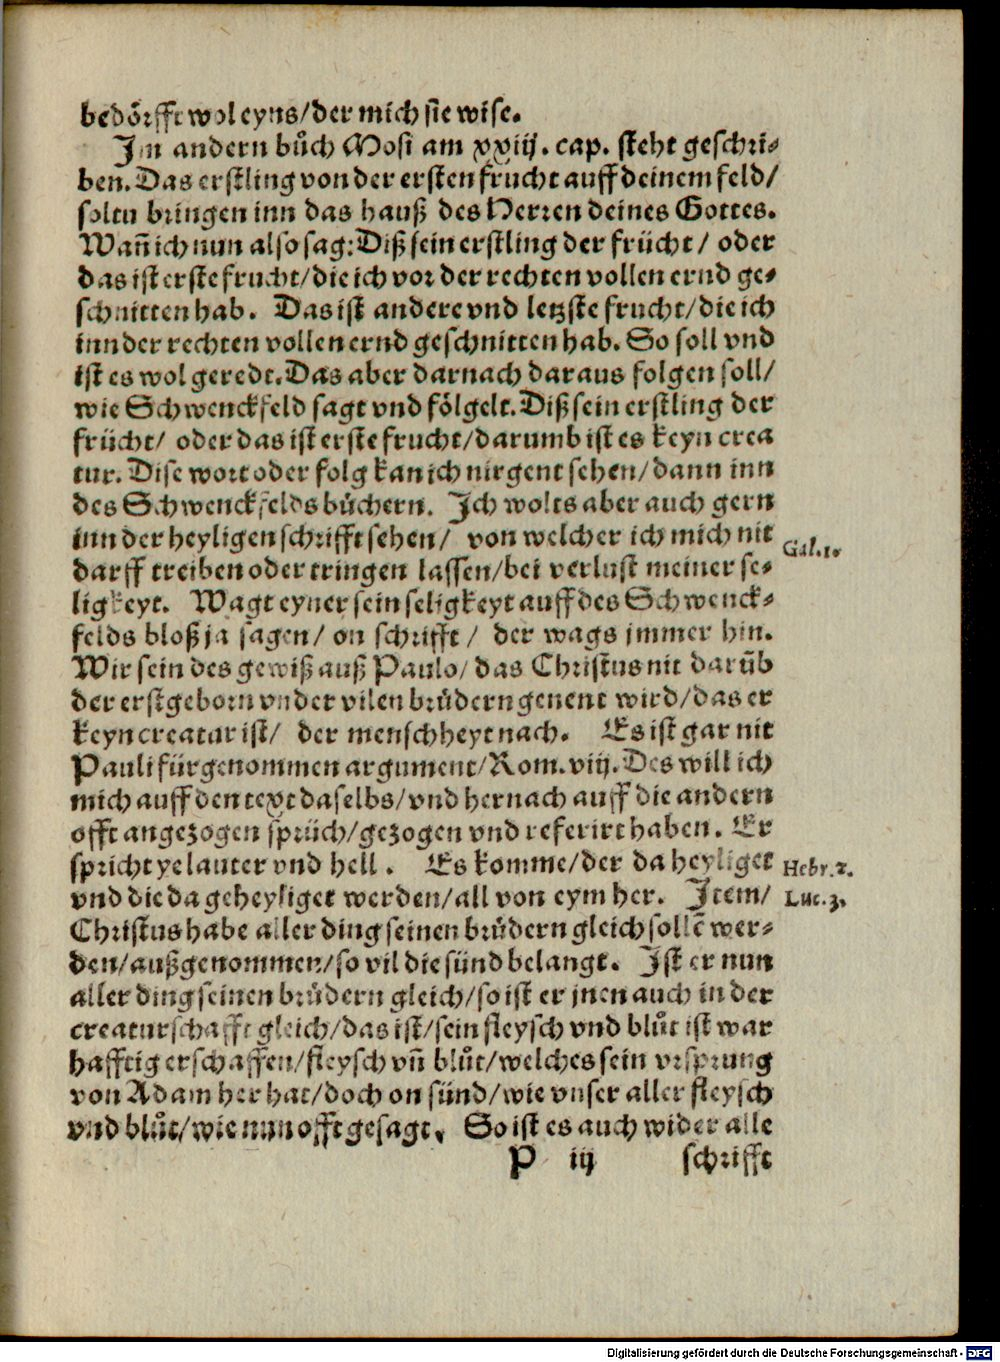 bedörfft wol eyns/der mich sie wise.
Im andern bůch Mosi am xxiij. cap. steht geschri-
ben. Das erstling von der ersten frucht auff deinem feld/
soltu bringen inn das hauß des Herren deines Gottes.
Wañ ich nun also sag: Diß sein erstling der frücht/ oder
das ist erste frucht/die ich vor der rechten vollen ernd ge-
schnitten hab. Das ist andere vnd letzste frucht/die ich
inn der rechten vollen ernd geschnitten hab. So soll vnd
ist es wol geredt. Das aber darnach daraus folgen soll/
wie Schwenckfeld sagt vnd fölgelt. Diß sein erstling der
frücht/ oder das ist erste frucht/darumb ist es keyn crea
tur. Dise wort oder folg kan ich nirgent sehen/dann inn
des Schwenckfelds bůchern. Ich wolts aber auch gern
inn der heyligen schrifft sehen/ von welcher ich mich nit
Gal. 1.
darff treiben oder tringen lassen/bei verlust meiner se-
ligkeyt. Wagt eyner sein seligkeyt auff des Schwenck-
felds bloß ja sagen/ on schrifft/ der wags jmmer hin.
Wir sein des gewiß auß Paulo/ das Christus nit darũb
der erstgeborn vnder vilen brůdern genent wird/das er
keyn creatur ist/ der menschheyt nach. Es ist gar nit
Pauli fürgenommen argument/Rom. viij. Des will ich
mich auff den text daselbs/vnd hernach auff die andern
offt angezogen sprüch/gezogen vnd referirt haben. Er
spricht ye lauter vnd hell. Es komme/der da heyliget
Hebr. 2.
vnd die da geheyliget werden/all von eym her. Item/
Luc. 3.
Christus habe aller ding seinen brůdern gleich sollẽ wer-
den/außgenommen/so vil die sünd belangt. Ist er nun
aller ding seinen brůdern gleich/so ist er jnen auch in der
creaturschafft gleich/das ist/sein fleysch vnd blůt ist war
hafftig erschaffen/fleysch vñ blůt/welches sein vrsprung
von Adam her hat/doch on sünd/wie vnser aller fleysch
vnd blůt/wie nun offt gesagt. So ist es auch wider alle
P iij schrifft
Digitalisierung gefördert durch die Deutsche Forschungsgemeinschaft - DFG